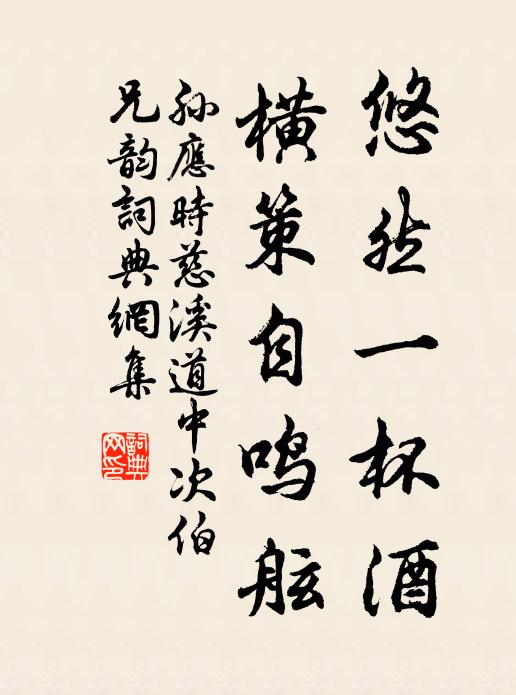 悠然一杯酒
横策自鸣舷
孙應時慈溪道中次伯
兄韵詞典網集
詞典网印